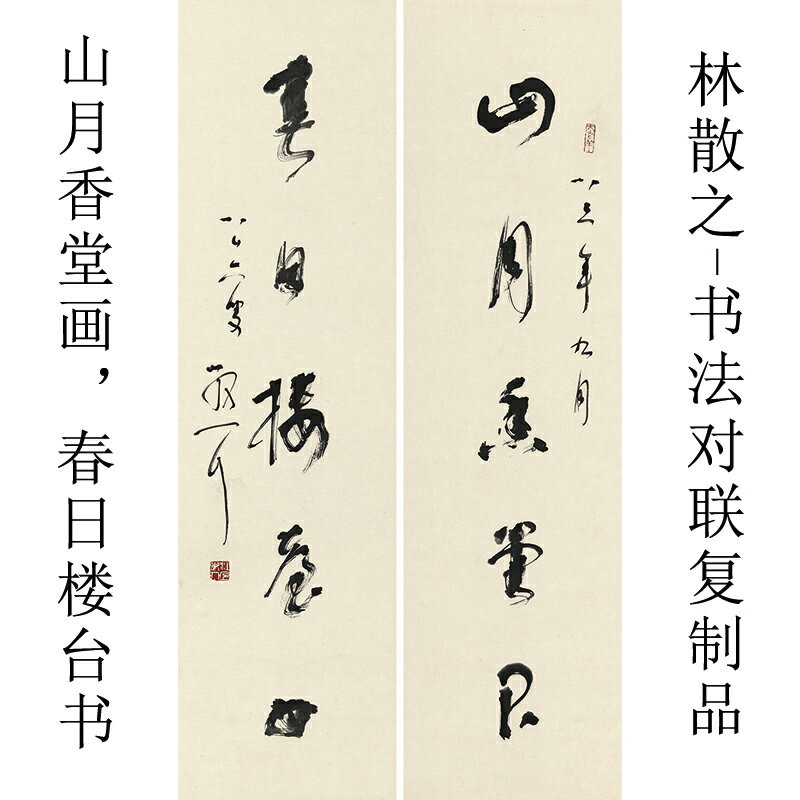 林散之-书法对联复制品
八三年九月
山月香堂
春日楼台
八十六叟
散耳
山月香堂画，春日楼台书